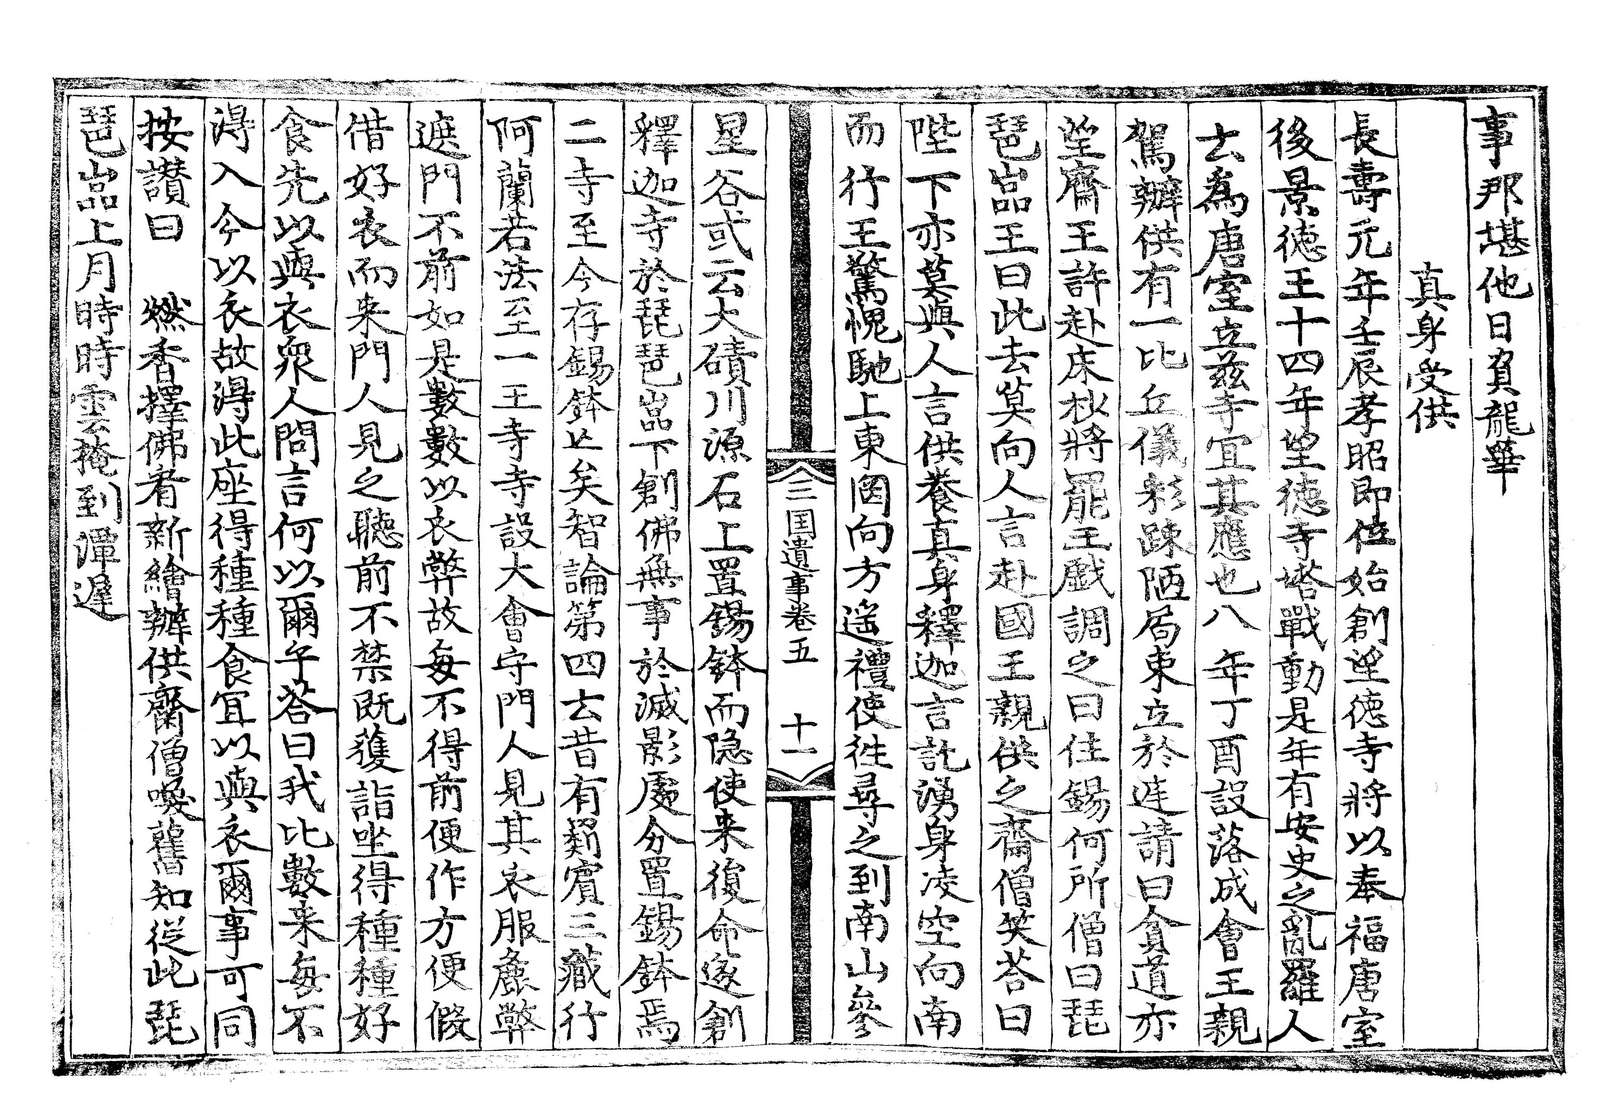 事那堪他日負龍華
真身受供
長壽元年壬辰孝昭即位始創望德寺將以奉福唐室
後景德王十四年望德寺塔戰動是年有安史之亂羅人
云爲唐室立兹寺宜其應也八年丁酉設落成會王親
駕辦供有一比丘儀彩踈陋局束立於庭請曰貧道亦
望齋王許赴床杪將罷王戯調之曰住錫何所僧曰琵
琶嵓王曰此去莫向人言赴國王親供之齋僧笑荅曰
陛下亦莫與人言供養真身釋迦言訖湧身凌空向南
而行王驚愧馳上東岡向方遥禮使往尋之到南山參
三国遺事卷五　十一
星谷或云大磧川源石上置錫鉢而隐使来復命遂創
釋迦寺於琵琶嵓下創佛無事於滅影處分置錫鉢焉
二寺至今存錫鉢亡矣智論第四云昔有罽賓三藏行
阿蘭若法至一王寺寺設大會守門人見其衣服麁弊
遮門不前如是數數以衣弊故每不得前便作方便假
借好衣而来門人見之聽前不禁既獲詣坐得種種好
食先以與衣衆人問言何以爾乎荅曰我比數来每不
得入今以衣故得此座得種種食宜以與衣爾事可同
按讃曰　燃香擇佛看新繪辦供齋僧喚舊知從此琵
琶嵓上月時時雲掩到潭遲